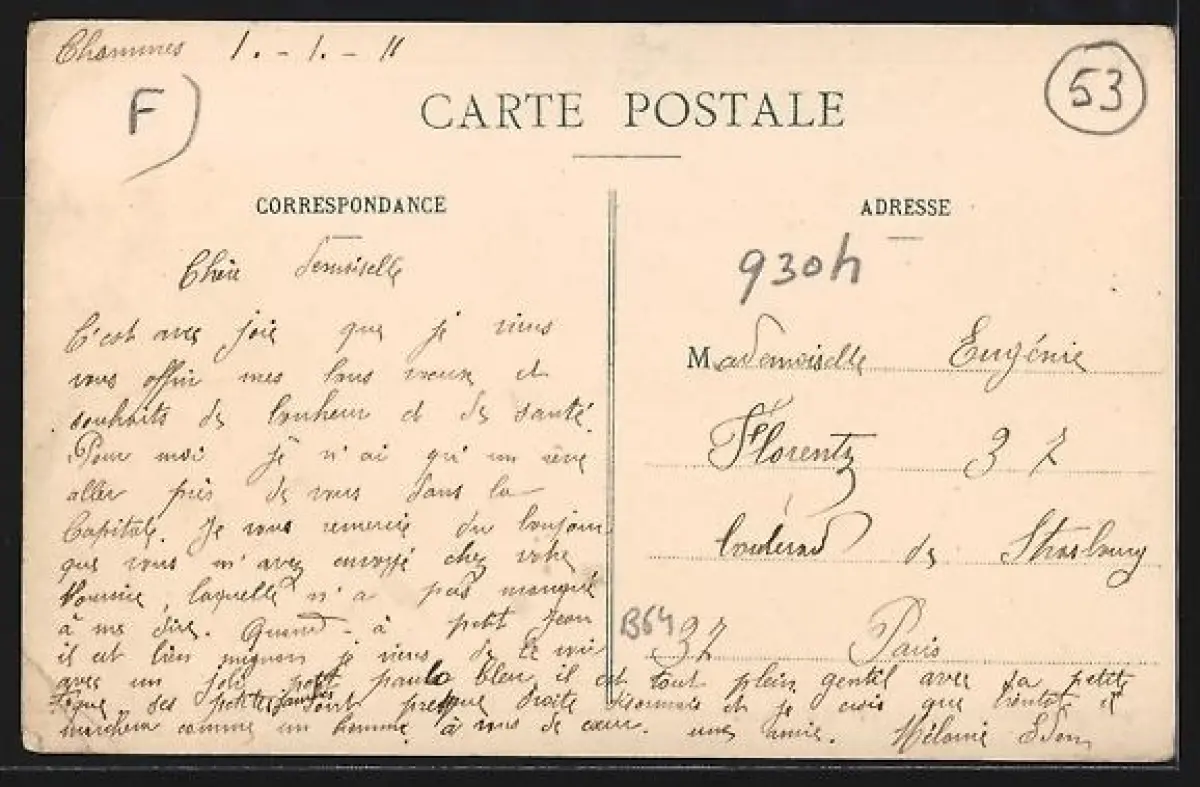 Chammes 1. - 1. - 11
F)
53
CARTE POSTALE
CORRESPONDANCE
ADRESSE
930h
Chère demoiselle
C'est avec joie que je viens
vous offrir mes bons voeux et
souhaits de bonheur et de santé.
Pour moi je n'ai qu'un rêve
aller près de vous dans la
Capitale. Je vous remercie du bonjour
que vous m'avez envoyé chez votre
laquelle n'a pas manqué
à me dire. Quand - à petit Jean
il est bien mignon je viens de le voir
avec un joli petit bleu, il est tout plein gentil avec sa petite
ses petites sont presque droite désormais et je crois que bientôt il
marchera comme un homme. à vous de cœur. une amie. Mélanie
Mademoiselle Eugénie
Florentz 37
boulevard de Strasbourg
B64 37 Paris